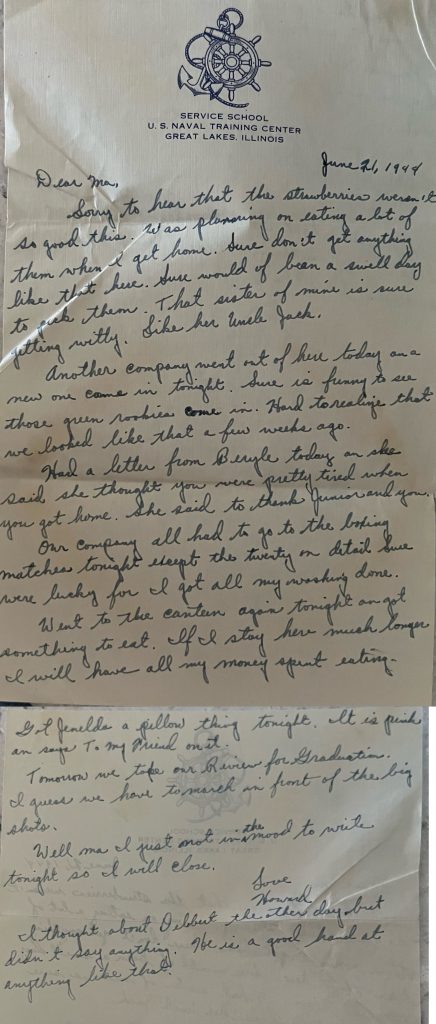 SERVICE SCHOOL
U. S. NAVAL TRAINING CENTER
GREAT LAKES, ILLINOIS
June 21, 1944
Dear Ma,
Sorry to hear that the strawberries weren't
so good this. Was planning on eating a lot of
them when I get home. Sure don't get anything
like that here. Sure would of been a swell day
to pick them. That sister of mine is sure
gitting witty. Like her Uncle Jack.
Another company went out of here today an a
new one came in tonight. Sure is funny to see
those green rookies come in. Hard to realize that
we looked like that a few weeks ago.
Had a letter from Beryle today an she
said she thought you were pretty tired when
you got home. She said to thank Junior and you.
Our company all had to go to the boxing
matches tonight except the twenty on detail. Sure
were lucky for I got all my washing done.
Went to the canteen again tonight an got
something to eat. If I stay here much longer
I will have all my money spent eating.
Got Jenelda a pillow thing tonight. It is pink
an says To My Friend on it.
Tomorrow we take our Review for Graduation.
I guess we have to march in front of the big
shots.
Well ma I just not in the mood to write
tonight so I will close.
Love
Howard
I thought about Delbert the other day but
didn't say anything. He is a good hand at
anything like that.